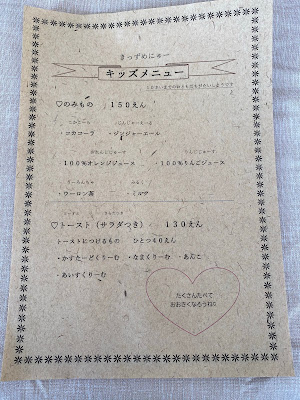 きっずめにゅー
キッズメニュー
♡のみもの　１５０えん
・コカコーラ　・ジンジャーエール
・１００％オレンジジュース　・１００％りんごジュース
・ウーロン茶　・ミルク
♡トースト（サラダつき）　１３０えん
トーストにつけるもの　ひとつ４０えん
・かすたーどくりーむ　・なまくりーむ　・あんこ
・あいすくりーむ
たくさんたべて
おおきくなろうね